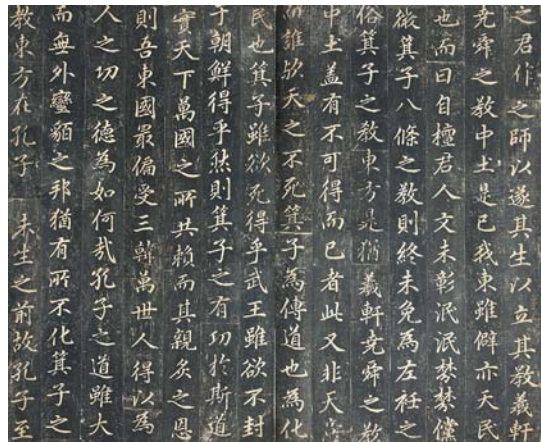 之君作之師以遂其生以立其教羲軒
堯舜之教中土是已我東雖僻亦天民
也而曰自檀君人文未彰泯泯棼棼儻
微箕子八條之教則終未免為左衽之
俗箕子之教東方是猶羲軒堯舜之教
中土盖有不可得而已者此又非天
而誰欤天之不死箕子為傳道也為化
民也箕子雖欲死得乎武王雖欲不封
于朝鮮得乎然則箕子之有功於斯道
實天下萬國之所共賴而其親炙之恩
則吾東國最偏受三韓萬世人得以為
人之功之德為如何哉孔子之道雖大
而無外蠻貊之邦猶有所不化箕子之
教東方在孔子 未生之前故孔子至